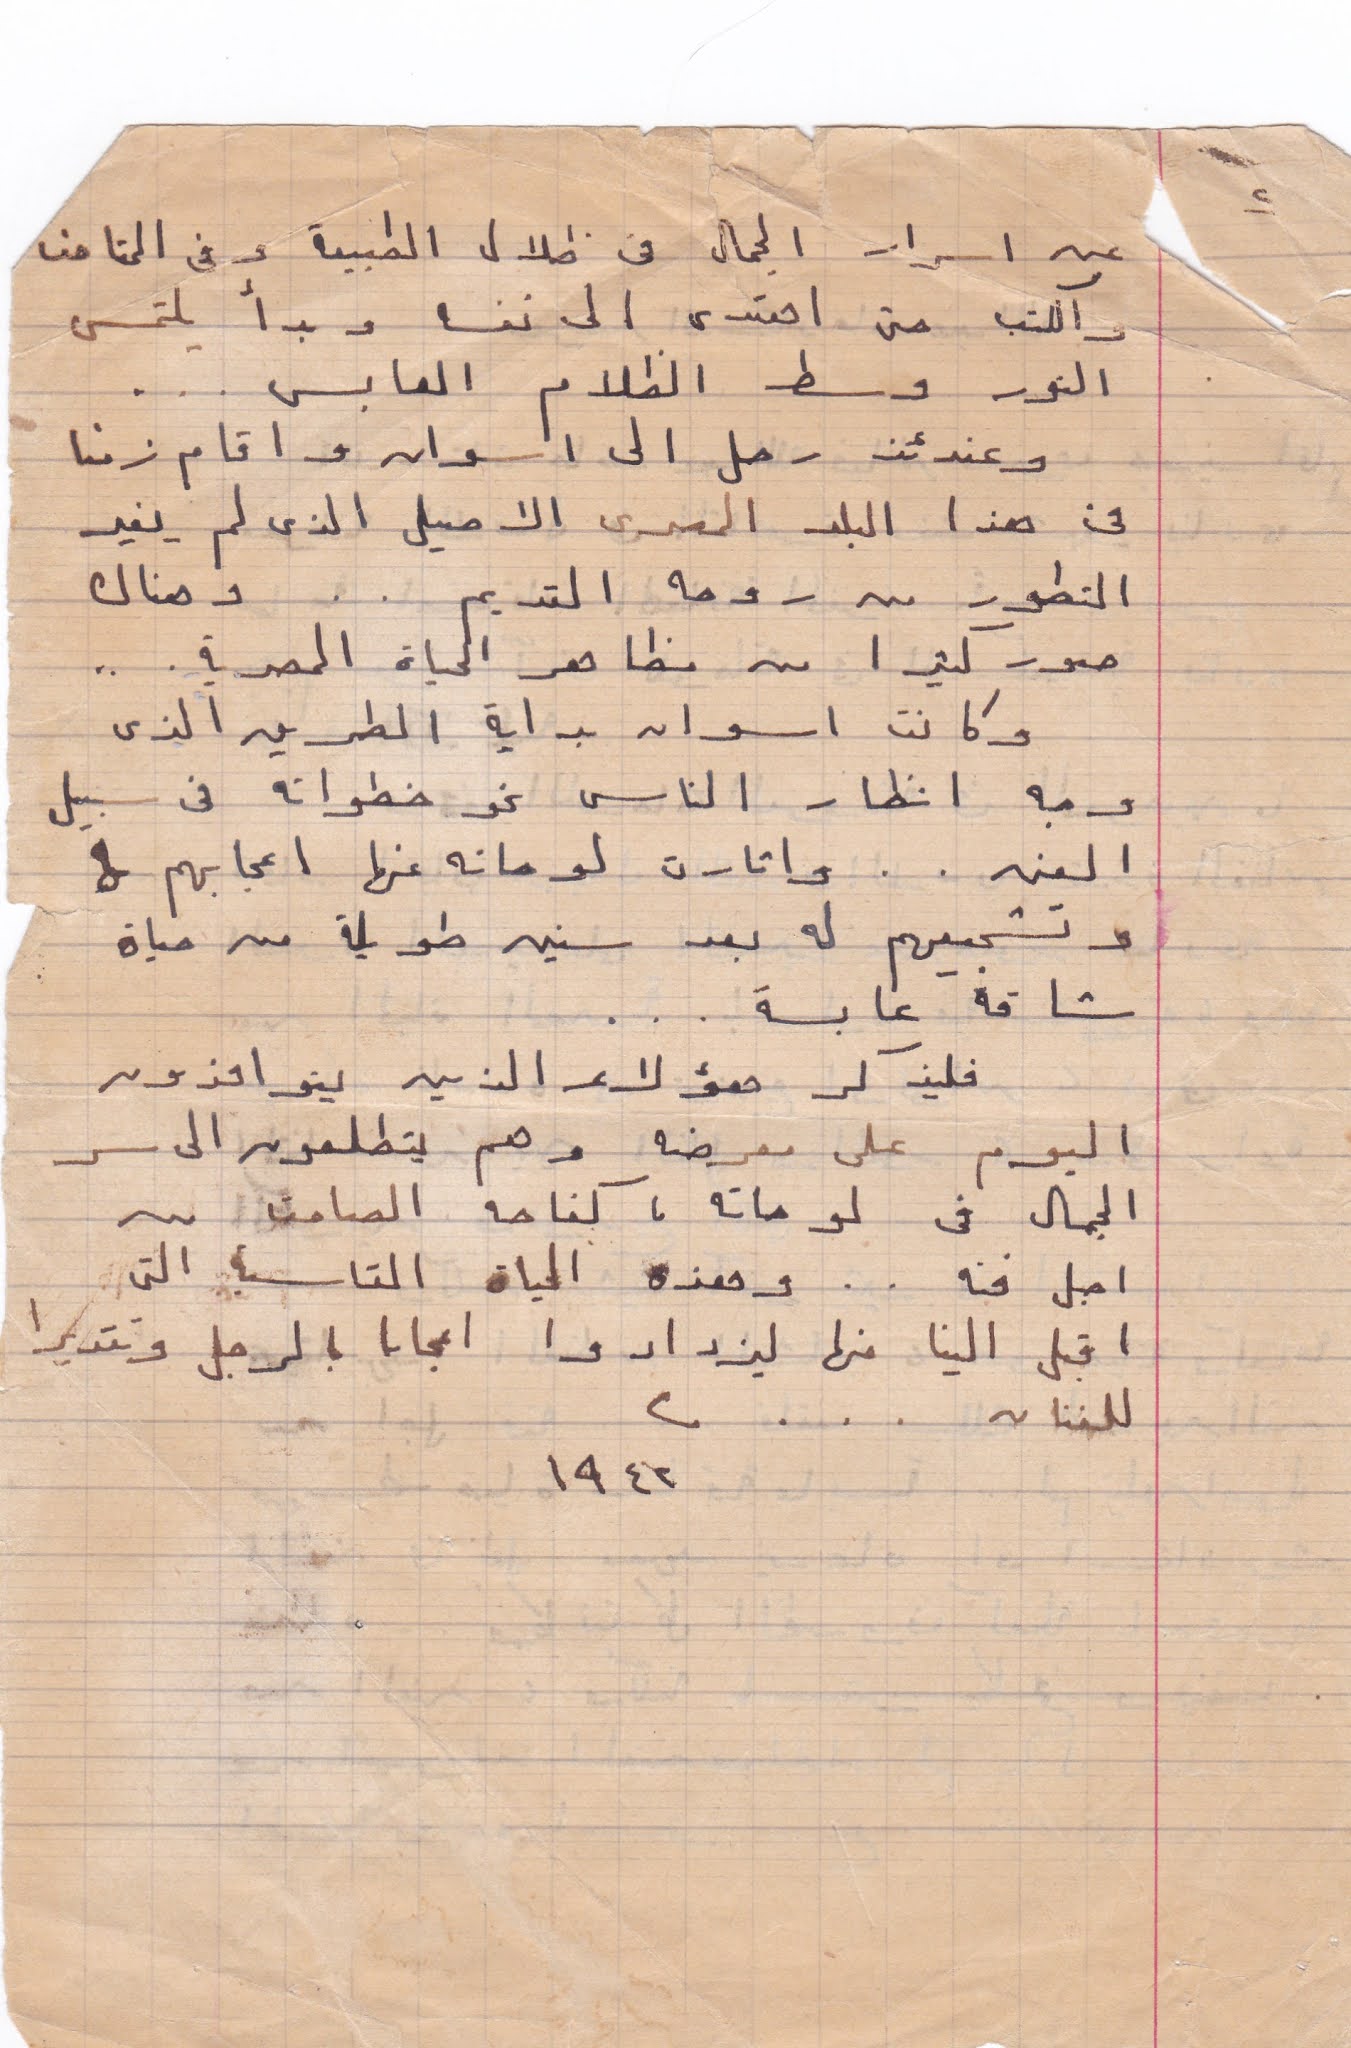 ٢
عن اسرار الجمال فى ظلال الطبيعة وفى المتاحف
والكتب حتى اهتدى الى نفسه وبدأ يلتمس
النور وسط الظلام العابس . . .
وعندئذ رحل الى اسوان واقام زمنا
فى هذا البلد المصرى الاصيل الذى لم يغير
التطور من روحه القديم . . وهناك
صور كثيرا من مظاهر الحياة المصرية . . .
وكانت اسوان بداية الطريق الذى
وجه انظار الناس نحو خطواته فى سبيل
الفن . . واثارت لوحاته عنها اعجابهم
وتشجيعهم له بعد سنين طويلة من حياة
شاقة عابسة . . .
فليذكر هؤلاء الذين يتوافدون
اليوم على معرضه وهم يتطلعون الى سر
الجمال فى لوحاته ، كفاحه الصامت من
اجل فنه . . وهذه الحياة القاسية التى
اقبل الينا منها ليزدادوا اعجابا بالرجل وتقديرا
للفنان . . .
١٩٤٢